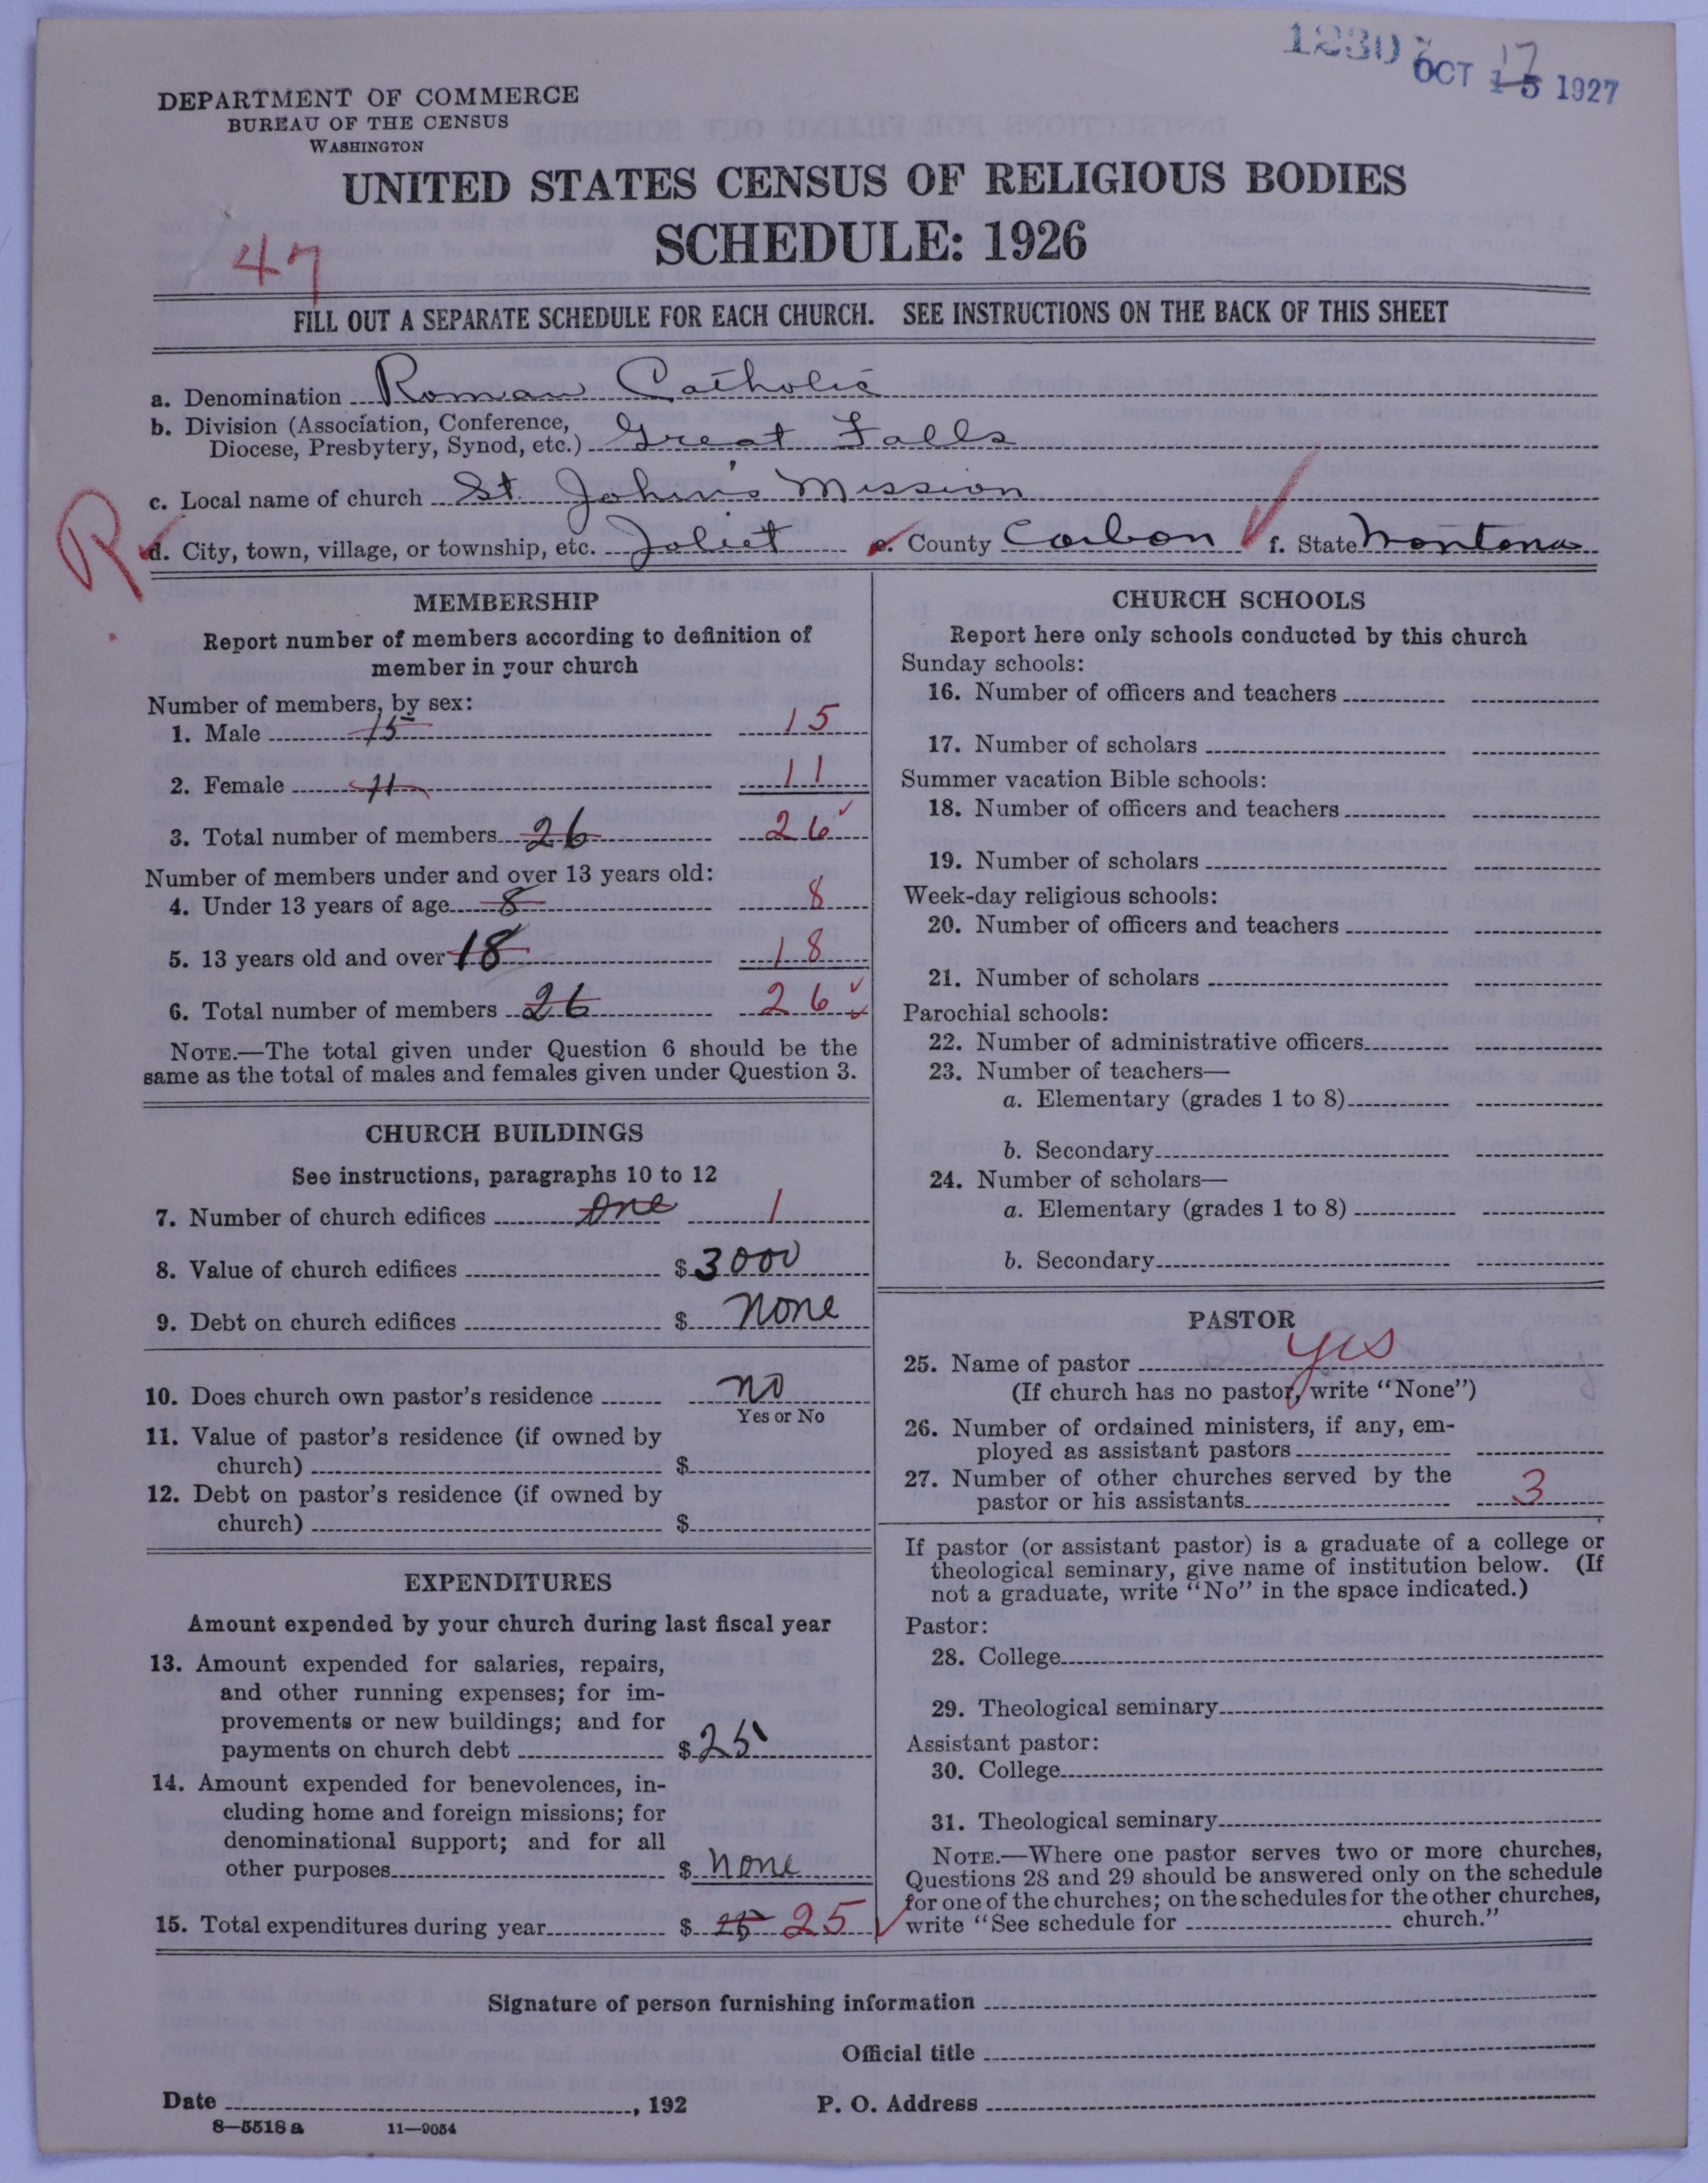 12307
OCT 15 17 1927
DEPARTMENT OF COMMERCE
BUREAU OF THE CENSUS
WASHINGTON
UNITED STATES CENSUS OF RELIGIOUS BODIES
SCHEDULE: 1926
47
FILL OUT A SEPARATE SCHEDULE FOR EACH CHURCH. SEE INSTRUCTIONS ON THE BACK OF THIS SHEET
a. Denomination Roman Catholic
b. Division (Association, Conference,
Diocese, Presbytery, Synod, etc.) Great Falls
c. Local name of church St. John's Mission
R
d. City, town, village, or township, etc. Joliet e. County Carbon f. State Montana
MEMBERSHIP
Report number of members according to definition of
member in your church
Number of members, by sex:
1. Male 15 15
2. Female 11 11
3. Total number of members 26 26
Number of members under and over 13 years old:
4. Under 13 years of age 8 8
5. 13 years old and over 18 18
6. Total number of members 26 26
NOTE.—The total given under Question 6 should be the
same as the total of males and females given under Question 3.
CHURCH BUILDINGS
See instructions, paragraphs 10 to 12
7. Number of church edifices One 1
8. Value of church edifices $ 3000
9. Debt on church edifices $ None
10. Does church own pastor's residence No
Yes or No
11. Value of pastor's residence (if owned by
church) $
12. Debt on pastor's residence (if owned by
church) $
EXPENDITURES
Amount expended by your church during last fiscal year
13. Amount expended for salaries, repairs,
and other running expenses; for im-
provements or new buildings; and for
payments on church debt $ 25
14. Amount expended for benevolences, in-
cluding home and foreign missions; for
denominational support; and for all
other purposes $ None
15. Total expenditures during year $ 25 25
CHURCH SCHOOLS
Report here only schools conducted by this church
Sunday schools:
16. Number of officers and teachers
17. Number of scholars
Summer vacation Bible schools:
18. Number of officers and teachers
19. Number of scholars
Week-day religious schools:
20. Number of officers and teachers
21. Number of scholars
Parochial schools:
22. Number of administrative officers
23. Number of teachers—
a. Elementary (grades 1 to 8)
b. Secondary
24. Number of scholars—
a. Elementary (grades 1 to 8)
b. Secondary
PASTOR
25. Name of pastor yes
(If church has no pastor, write "None")
26. Number of ordained ministers, if any, em-
ployed as assistant pastors
27. Number of other churches served by the
pastor or his assistants 3
If pastor (or assistant pastor) is a graduate of a college or
theological seminary, give name of institution below. (If
not a graduate, write "No" in the space indicated.)
Pastor:
28. College
29. Theological seminary
Assistant pastor:
30. College
31. Theological seminary
NOTE.—Where one pastor serves two or more churches,
Questions 28 and 29 should be answered only on the schedule
for one of the churches; on the schedules for the other churches,
write "See schedule for church."
Signature of person furnishing information
Official title
Date , 192 P. O. Address
8—5518 a 11—9054